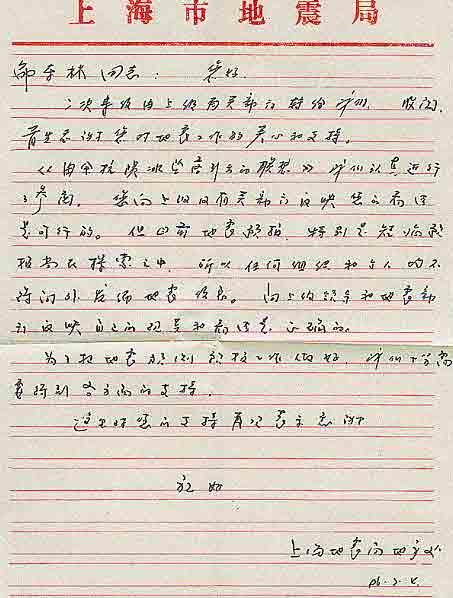 上海市地震局
林同志: 您好.
二次来信由上级有关部门转给我们,收阅.
首先感谢您对地震工作的关心和支持.
陨冰坠落引出的联想》我们认真进行
了参阅. 您向上级及有关部门反映您的看法
是可行的。但目前地震预报,特别是短临预
报尚在探索之中,所以任何组织和个人均不
得向外发佈地震消息。向上级领导和地震部
门反映自己的观点和看法是正确的.
为了把地震预测预报工作做好,我们十分需
要得到各方面的支持.
这里对您的支持再次表示感谢
上海地震局